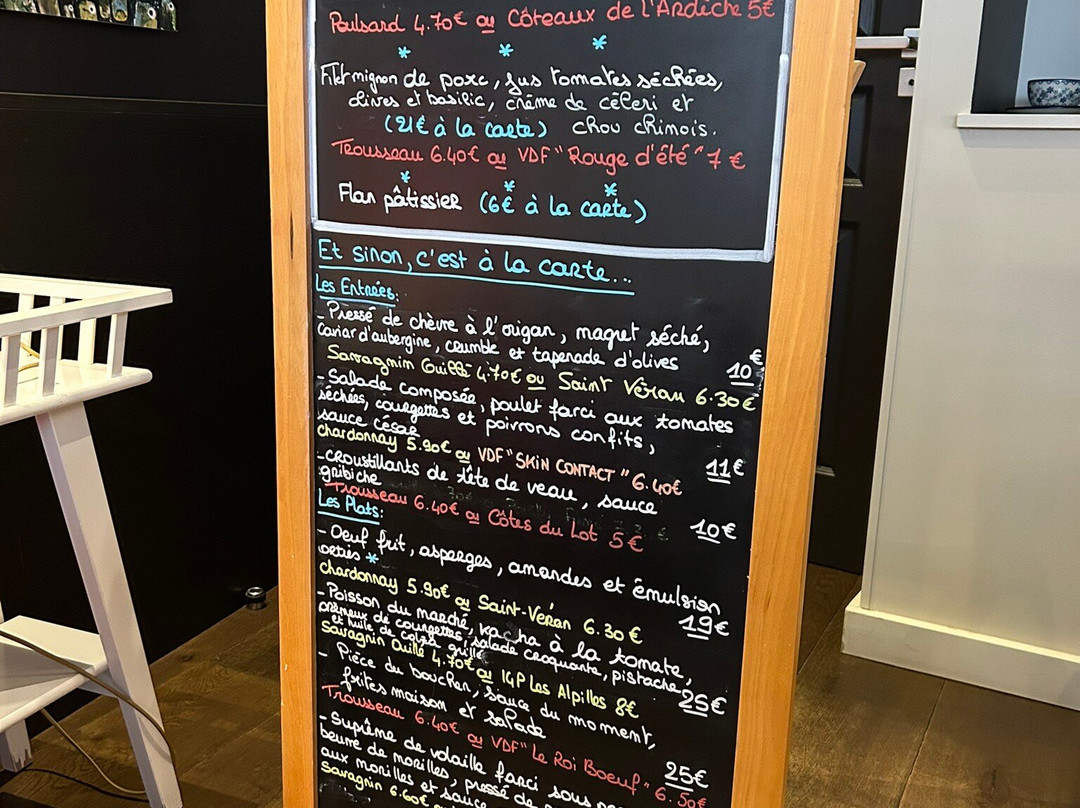 Poulsard 4.70€ ou Côteaux de l'Ardèche 5€
* * *
Filet mignon de porc, jus tomates séchées,
olives et basilic, crème de céleri et
(21€ à la carte) chou chinois.
Trousseau 6.40€ ou VDF "Rouge d'été" 7 €
* * *
Flan pâtissier (6€ à la carte)
Et sinon, c'est à la carte...
Les Entrées:
- Pressé de chèvre à l'origan, magret séché,
caviar d'aubergine, crumble et tapenade d'olives 10€
Savagnin Ouillé 4.70€ ou Saint Véran 6.30€
- Salade composée, poulet farci aux tomates
séchées, courgettes et poivrons confits,
sauce césar 11€
Chardonnay 5.90€ ou VDF "SKIN CONTACT" 6.40€
- croustillants de tête de veau, sauce
gribiche 10€
Trousseau 6.40€ ou Côtes du Lot 5€
Les Plats:
- Oeuf frit, asperges, amandes et émulsion
19€
Chardonnay 5.90€ ou Saint-Véran 6.30€
- Poisson du marché, kacha à la tomate,
primeur de courgettes, salade croquante, pistache
et huile de colza grillé 25€
Savagnin Ouillé 4.70€ ou IGP Les Alpilles 8€
- Pièce du boucher, sauce du moment,
frites maison et salade 25€
Trousseau 6.40€ ou VDF "Le Roi Boeuf" 6.50€
- Suprême de volaille farci sous
beurre de morilles, pressé de
aux morilles et sauce
Savagnin 6.60€